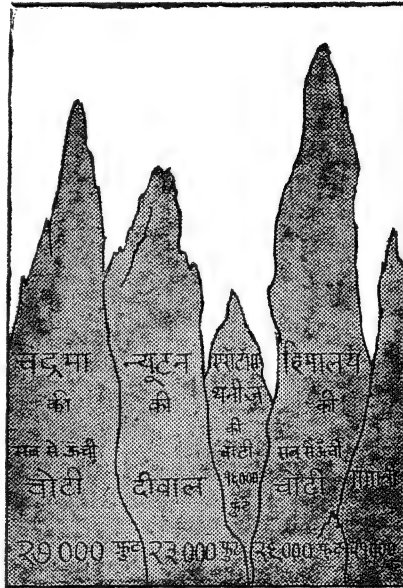 चंद्रमा
की
सब से ऊँची
चोटी
२७,००० फुट
न्यूटन
की
दीवाल
२३००० फुट
की
चोटी
१६०००
फुट
हिमालय
की
सब से ऊँची
चोटी
२९००० फुट